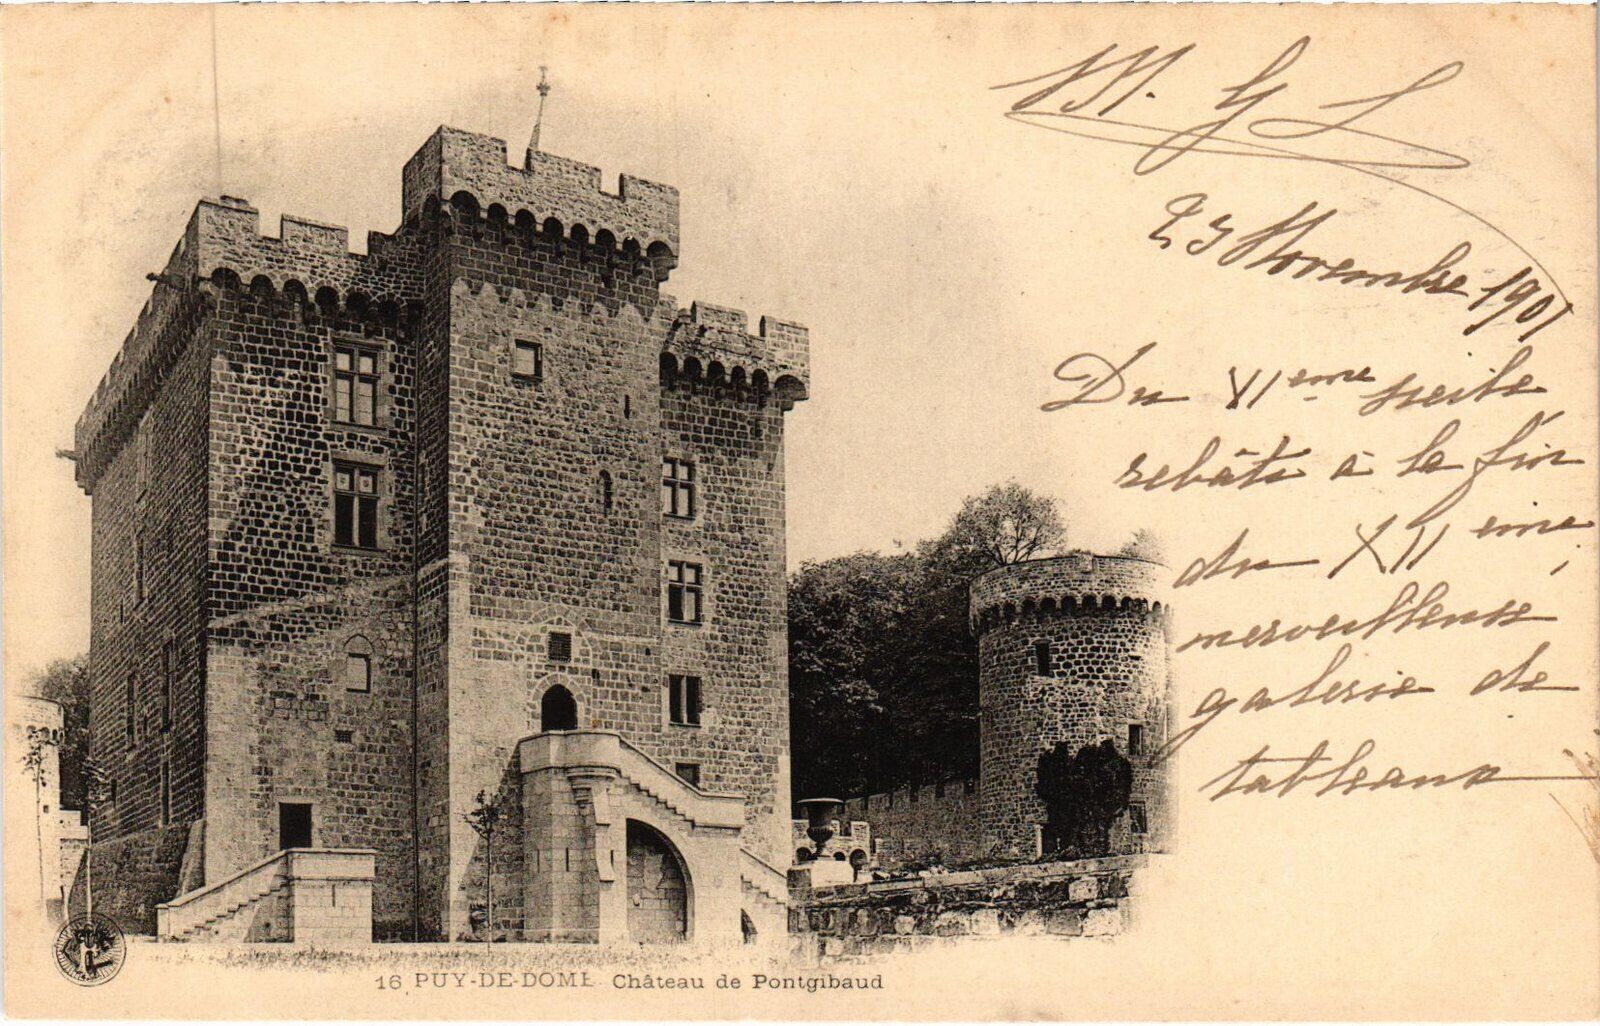 M. G. L
23 Novembre 1901
Du XIeme siècle
rebâti à la fin
du XIIeme,
merveilleuse
galerie de
tableaux
16 PUY-DE-DOME Château de Pontgibaud